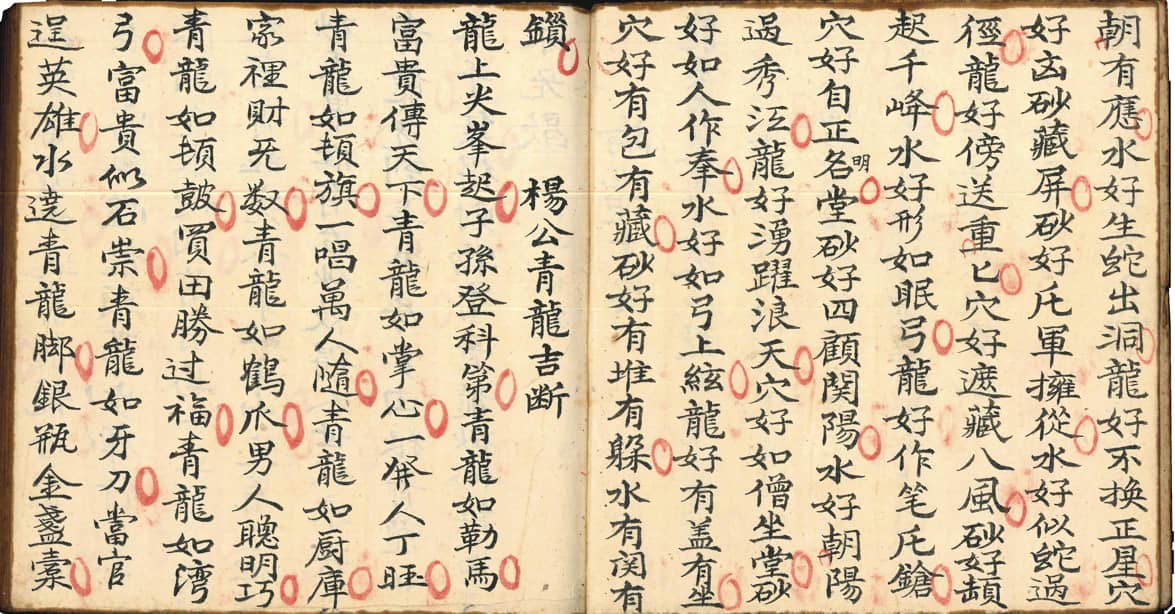 朝有應水好生蛇出洞龍好不換正星穴
好玄砂藏屏砂好乇軍擁從水好似蛇過
徑龍好傍送重匕穴好遮藏八風砂好頓
起千峰水好形如眠弓龍好作笔乇鎗
穴好自正名明堂砂好四顧関陽水好朝陽
過秀江龍好湧躍浪天穴好如僧坐堂砂
好如人作奉水好如弓上絃龍好有盖有坐
穴好有包有藏砂好有堆有躲水有関有
鎖 楊公青龍吉断
龍上尖峯起子孫登科第青龍如勒馬
富貴傳天下青龍如掌心一発人丁旺
青龍如頓旗一唱萬人隨青龍如厨庫
家裡財旡数青龍如鶴爪男人聰明巧
青龍如頓皷買田勝过福青龍如湾
弓富貴似石崇青龍如牙刀當官
逞英雄水遶青龍脚銀瓶金盞橐